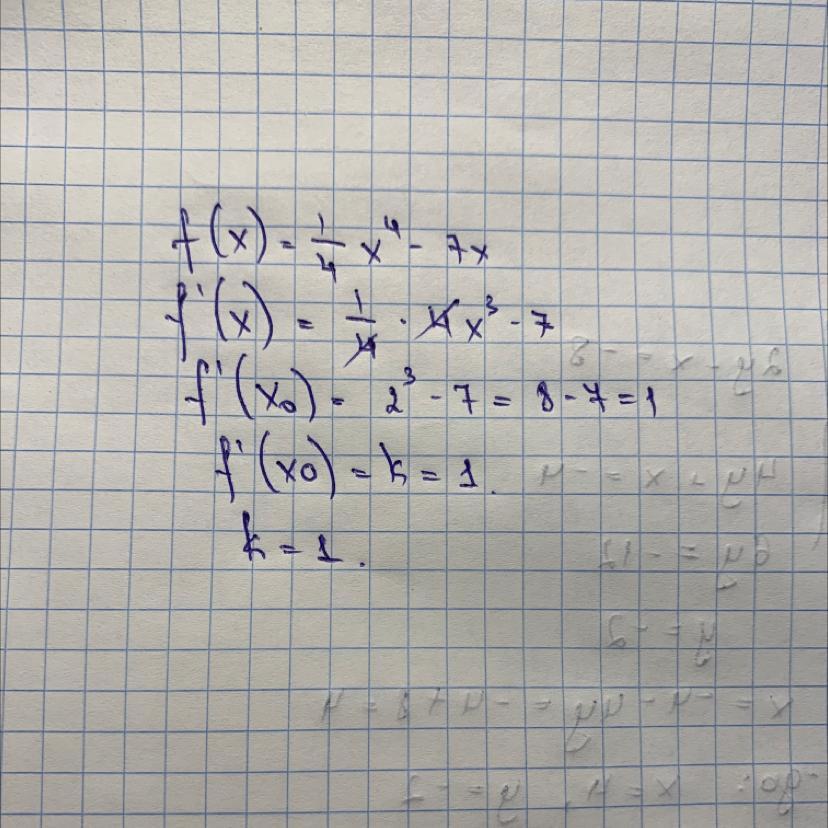 f(x) = 1/4 x⁴ - 7x
f'(x) = 1/4 · 4x³ - 7
f'(x₀) = 2³ - 7 = 8 - 7 = 1
f'(x0) = k = 1.
k = 1.